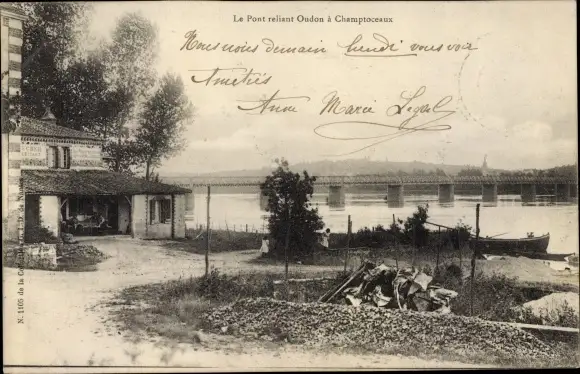 Le Pont reliant Oudon à Champtoceaux
Nous irons demain lundi vous voir
Amitiés
Anne Marie Legal
N. 1105 de la